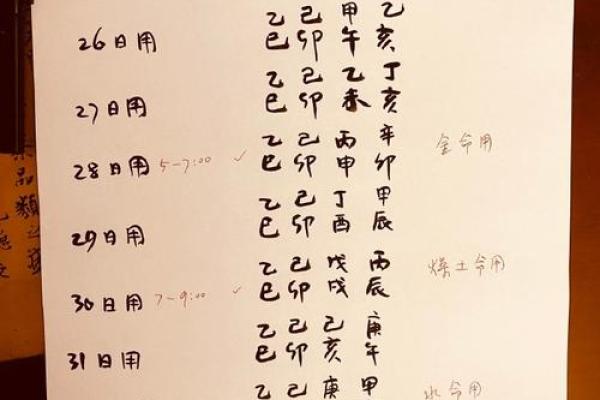 乙 己 甲 乙
26日用 巳 卯 午 亥
乙 己 乙 丁
27日用 巳 卯 未 亥
乙 己 丙 辛 金命用
28日用 5-7:00 ✓ 巳 卯 申 卯
乙 己 丁 甲
29日用 巳 卯 酉 辰
乙 己 戊 丙 燥土命用
30日用 7-9:00 ✓ 巳 卯 戌 辰
乙 己 己 庚
31日用 巳 卯 亥 午
乙 己 庚 甲 水命用
品類